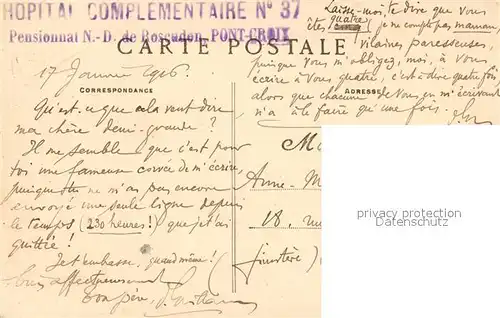 HOPITAL COMPLEMENTAIRE N° 37
Pensionnat N.-D. de Roscudon, PONT-CROIX
CARTE POSTALE
CORRESPONDANCE
ADRESSE
17 Janvier 1916
Qu'est-ce que cela veut dire
ma chère demi-grande ?
Il me semble que c'est pour
toi une fameuse corvée de m'écrire,
puisque tu ne m'as pas encore
envoyé une seule ligne depuis
le temps (230 heures !) que je t'ai
quittée !
Je t'embrasse, quand même !
affectueusement
ton père,
Laisse-moi te dire que vous
êtes quatre (je ne compte pas maman,
vilaines paresseuses
puisque vous m'obligez, moi, à vous
écrire à vous quatre, c'est à dire quatre fois
alors que chacune de vous en m'écrivant
n'a à le faire qu'une fois.
Anne-M
18, rue
Finistère
papierpostkarten.de
Datenschutz Papierpostkarten